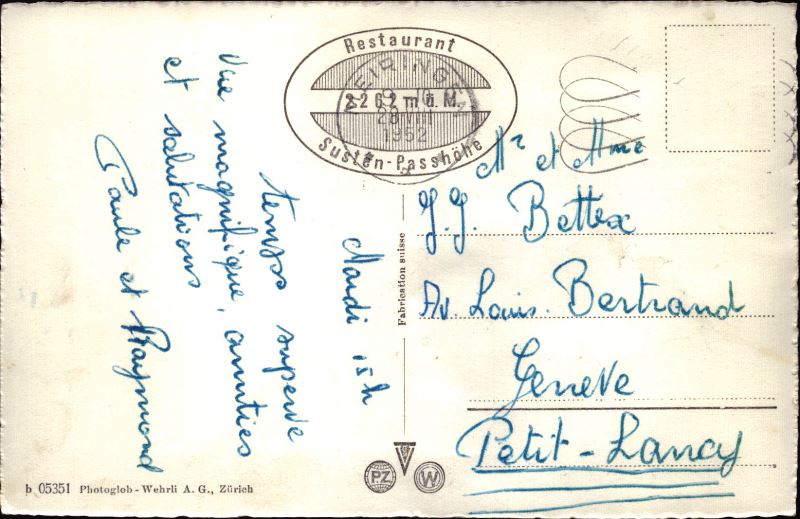 Restaurant
2262 m ü. M.
Susten-Passhöhe
MEIRINGEN
28 VIII
1952
Mardi 15h
temps superbe
Vue magnifique, amitiés
et salutations
Paule et Raymond
Fabrication suisse
Mr et Mme
J.J. Bettex
Av. Louis-Bertrand
Genève
Petit-Lancy
PZ
W
b 05351 Photoglob-Wehrli A. G., Zürich